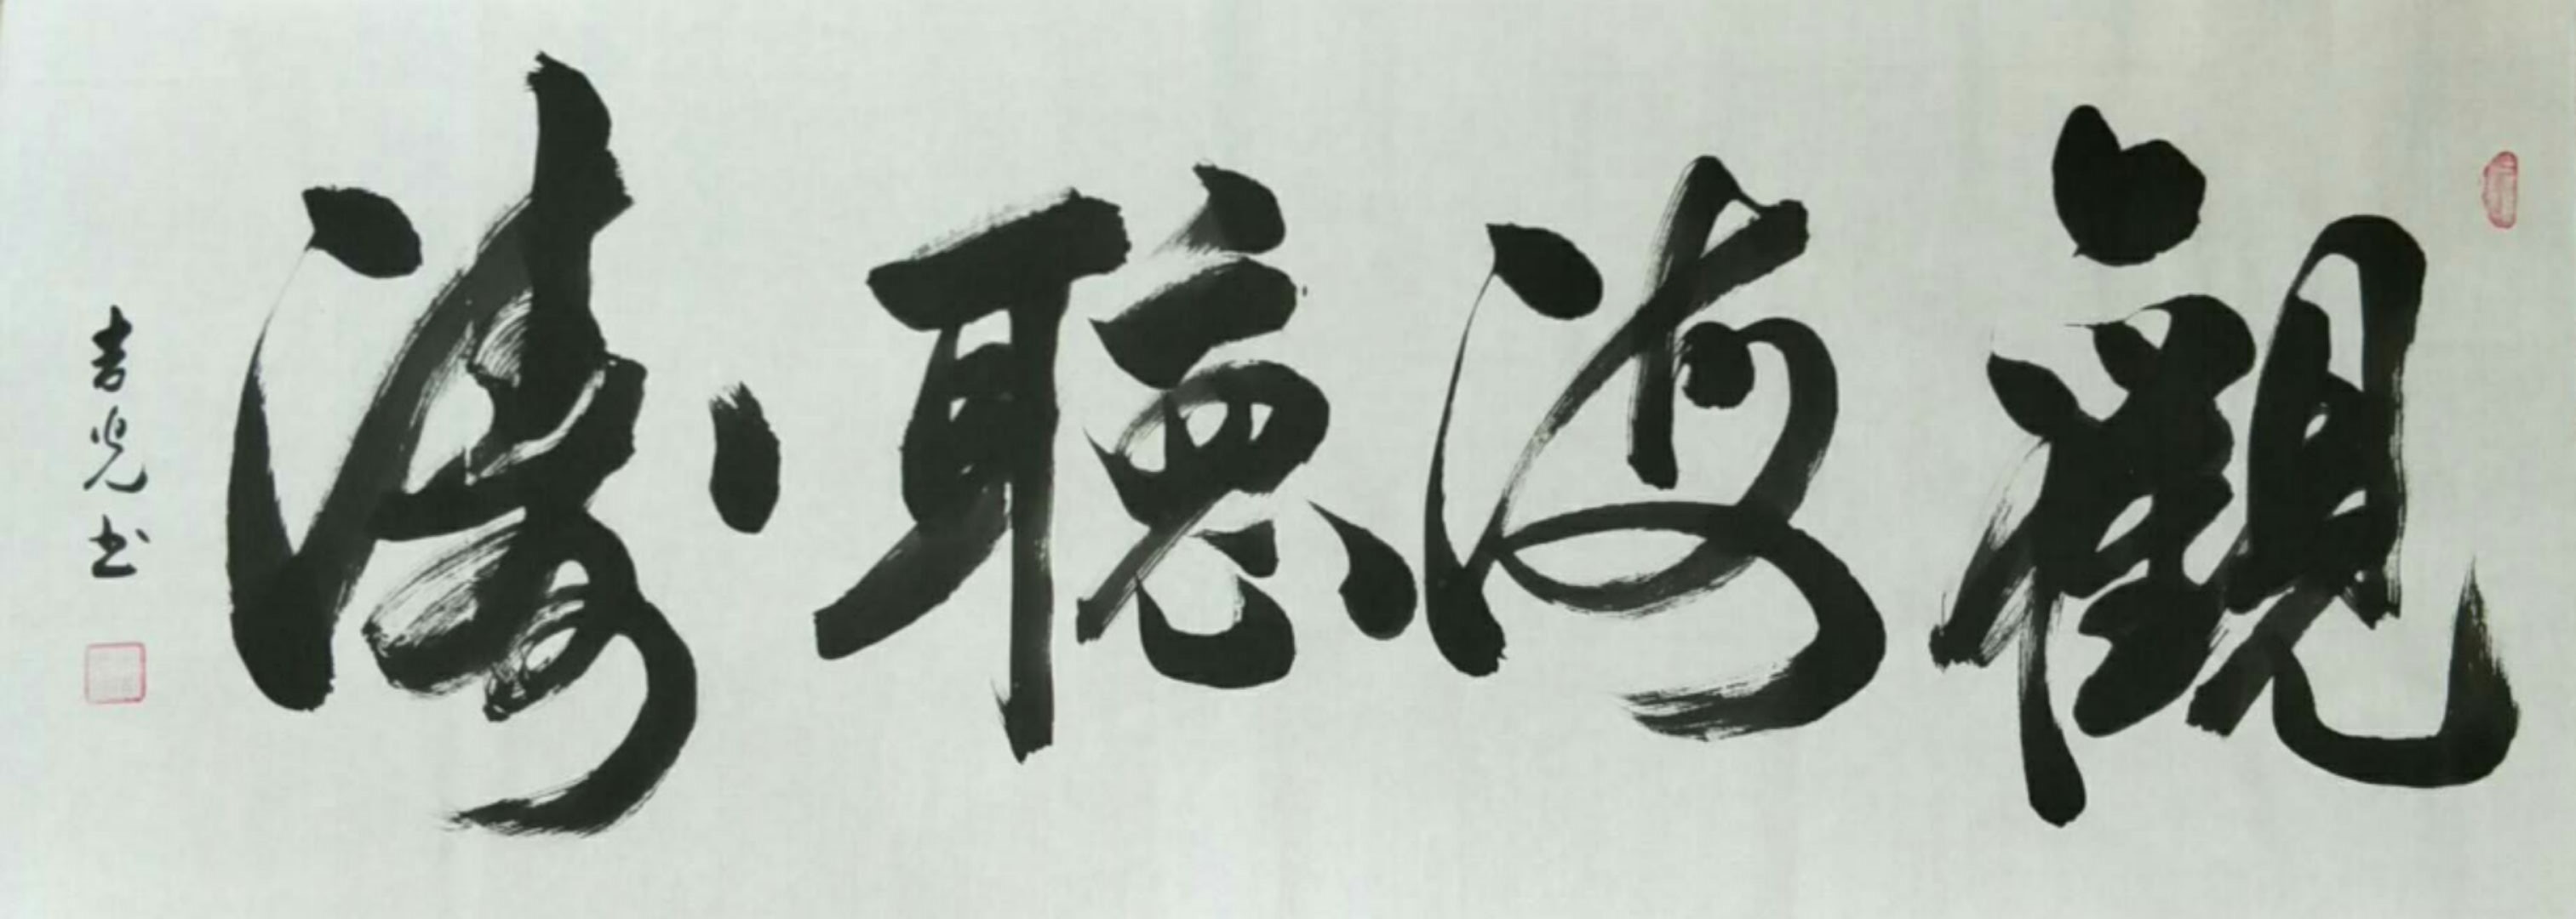 觀海聽濤
吉光书